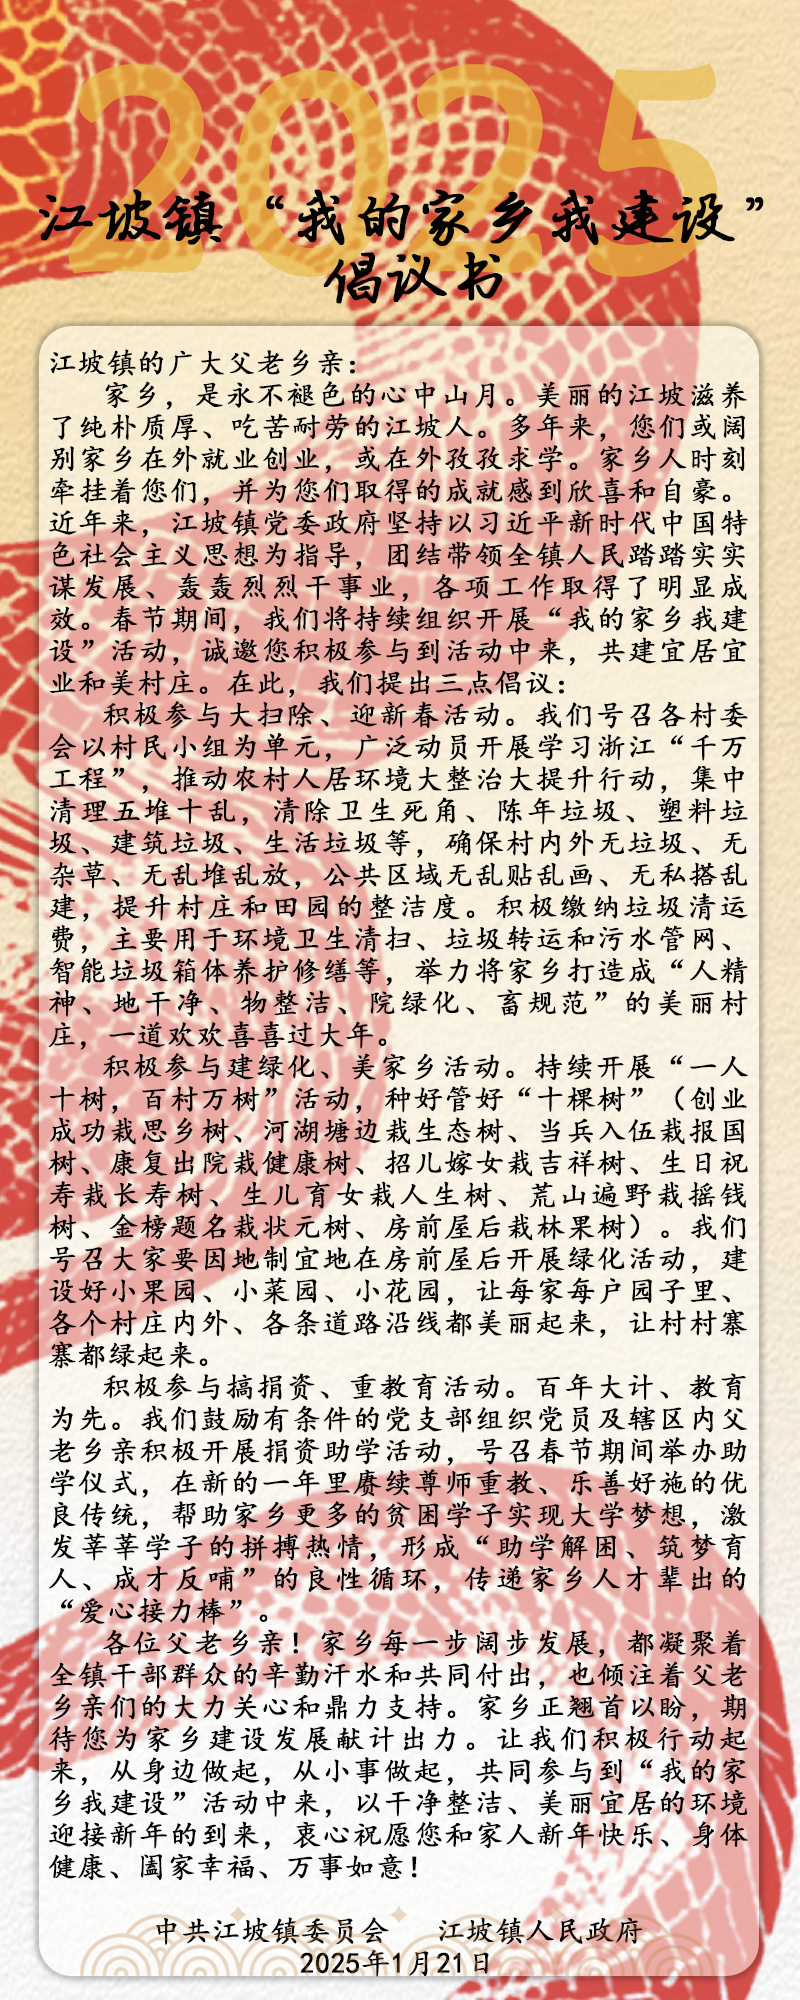 2025
江坡镇“我的家乡我建设”
倡议书
江坡镇的广大父老乡亲：
家乡，是永不褪色的心中山月。美丽的江坡滋养
了纯朴质厚、吃苦耐劳的江坡人。多年来，您们或阔
别家乡在外就业创业，或在外孜孜求学。家乡人时刻
牵挂着您们，并为您们取得的成就感到欣喜和自豪。
近年来，江坡镇党委政府坚持以习近平新时代中国特
色社会主义思想为指导，团结带领全镇人民踏踏实实
谋发展、轰轰烈烈干事业，各项工作取得了明显成
效。春节期间，我们将持续组织开展“我的家乡我建
设”活动，诚邀您积极参与到活动中来，共建宜居宜
业和美村庄。在此，我们提出三点倡议：
积极参与大扫除、迎新春活动。我们号召各村委
会以村民小组为单元，广泛动员开展学习浙江“千万
工程”，推动农村人居环境大整治大提升行动，集中
清理五堆十乱，清除卫生死角、陈年垃圾、塑料垃
圾、建筑垃圾、生活垃圾等，确保村内外无垃圾、无
杂草、无乱堆乱放，公共区域无乱贴乱画、无私搭乱
建，提升村庄和田园的整洁度。积极缴纳垃圾清运
费，主要用于环境卫生清扫、垃圾转运和污水管网、
智能垃圾箱体养护修缮等，举力将家乡打造成“人精
神、地干净、物整洁、院绿化、畜规范”的美丽村
庄，一道欢欢喜喜过大年。
积极参与建绿化、美家乡活动。持续开展“一人
十树，百村万树”活动，种好管好“十棵树”（创业
成功栽思乡树、河湖塘边栽生态树、当兵入伍栽报国
树、康复出院栽健康树、招儿嫁女栽吉祥树、生日祝
寿栽长寿树、生儿育女栽人生树、荒山遍野栽摇钱
树、金榜题名栽状元树、房前屋后栽林果树）。我们
号召大家要因地制宜地在房前屋后开展绿化活动，建
设好小果园、小菜园、小花园，让每家每户园子里、
各个村庄内外、各条道路沿线都美丽起来，让村村寨
寨都绿起来。
积极参与搞捐资、重教育活动。百年大计、教育
为先。我们鼓励有条件的党支部组织党员及辖区内父
老乡亲积极开展捐资助学活动，号召春节期间举办助
学仪式，在新的一年里赓续尊师重教、乐善好施的优
良传统，帮助家乡更多的贫困学子实现大学梦想，激
发莘莘学子的拼搏热情，形成“助学解困、筑梦育
人、成才反哺”的良性循环，传递家乡人才辈出的
“爱心接力棒”。
各位父老乡亲！家乡每一步阔步发展，都凝聚着
全镇干部群众的辛勤汗水和共同付出，也倾注着父老
乡亲们的大力关心和鼎力支持。家乡正翘首以盼，期
待您为家乡建设发展献计出力。让我们积极行动起
来，从身边做起，从小事做起，共同参与到“我的家
乡我建设”活动中来，以干净整洁、美丽宜居的环境
迎接新年的到来，衷心祝愿您和家人新年快乐、身体
健康、阖家幸福、万事如意！
中共江坡镇委员会　江坡镇人民政府
2025年1月21日